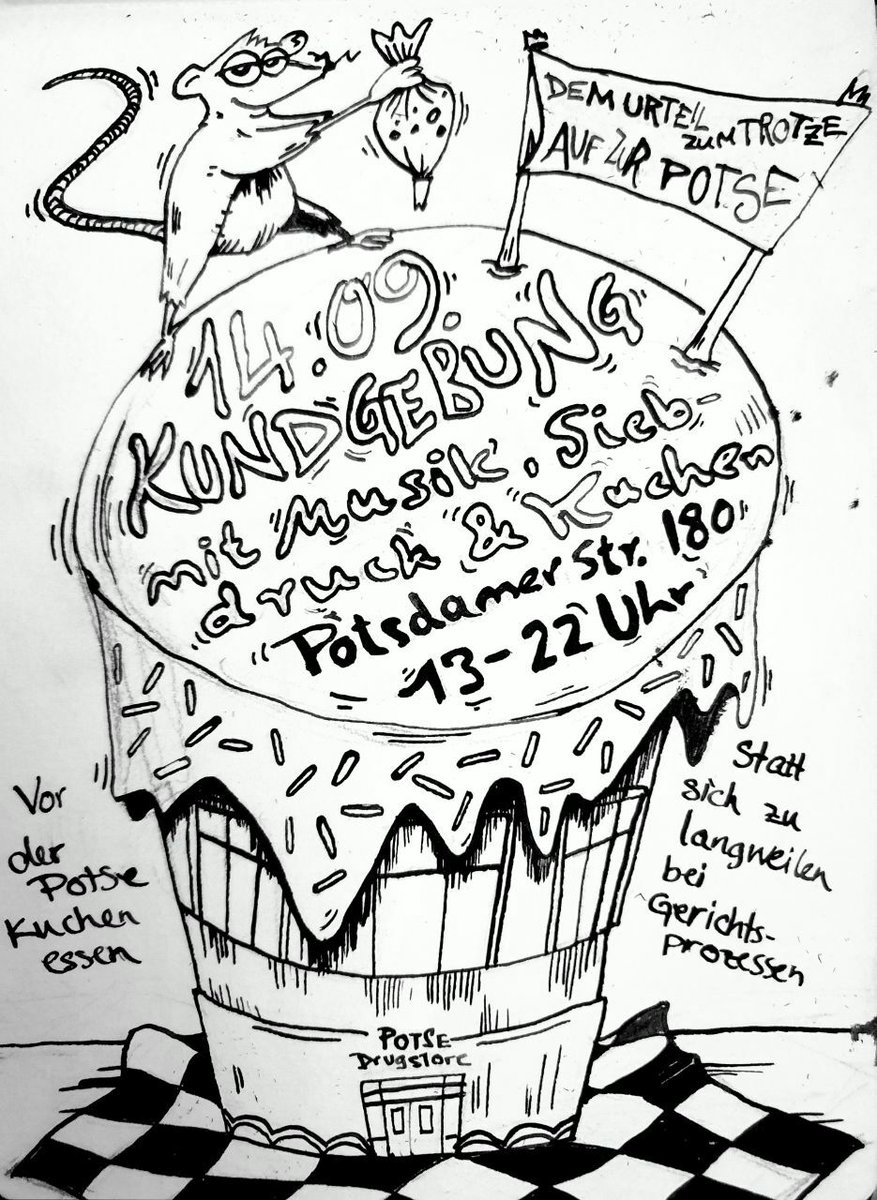 DEM URTEIL
ZUM TROTZE
AUF ZUR POTSE
14.09.
KUNDGEBUNG
mit Musik, Sieb-
druck & Kuchen
Potsdamer Str. 180
13-22 Uhr
Vor
der
Potse
Kuchen
essen
Statt
sich zu
langweilen
bei
Gerichts-
prozessen
POTSE
Drugstore